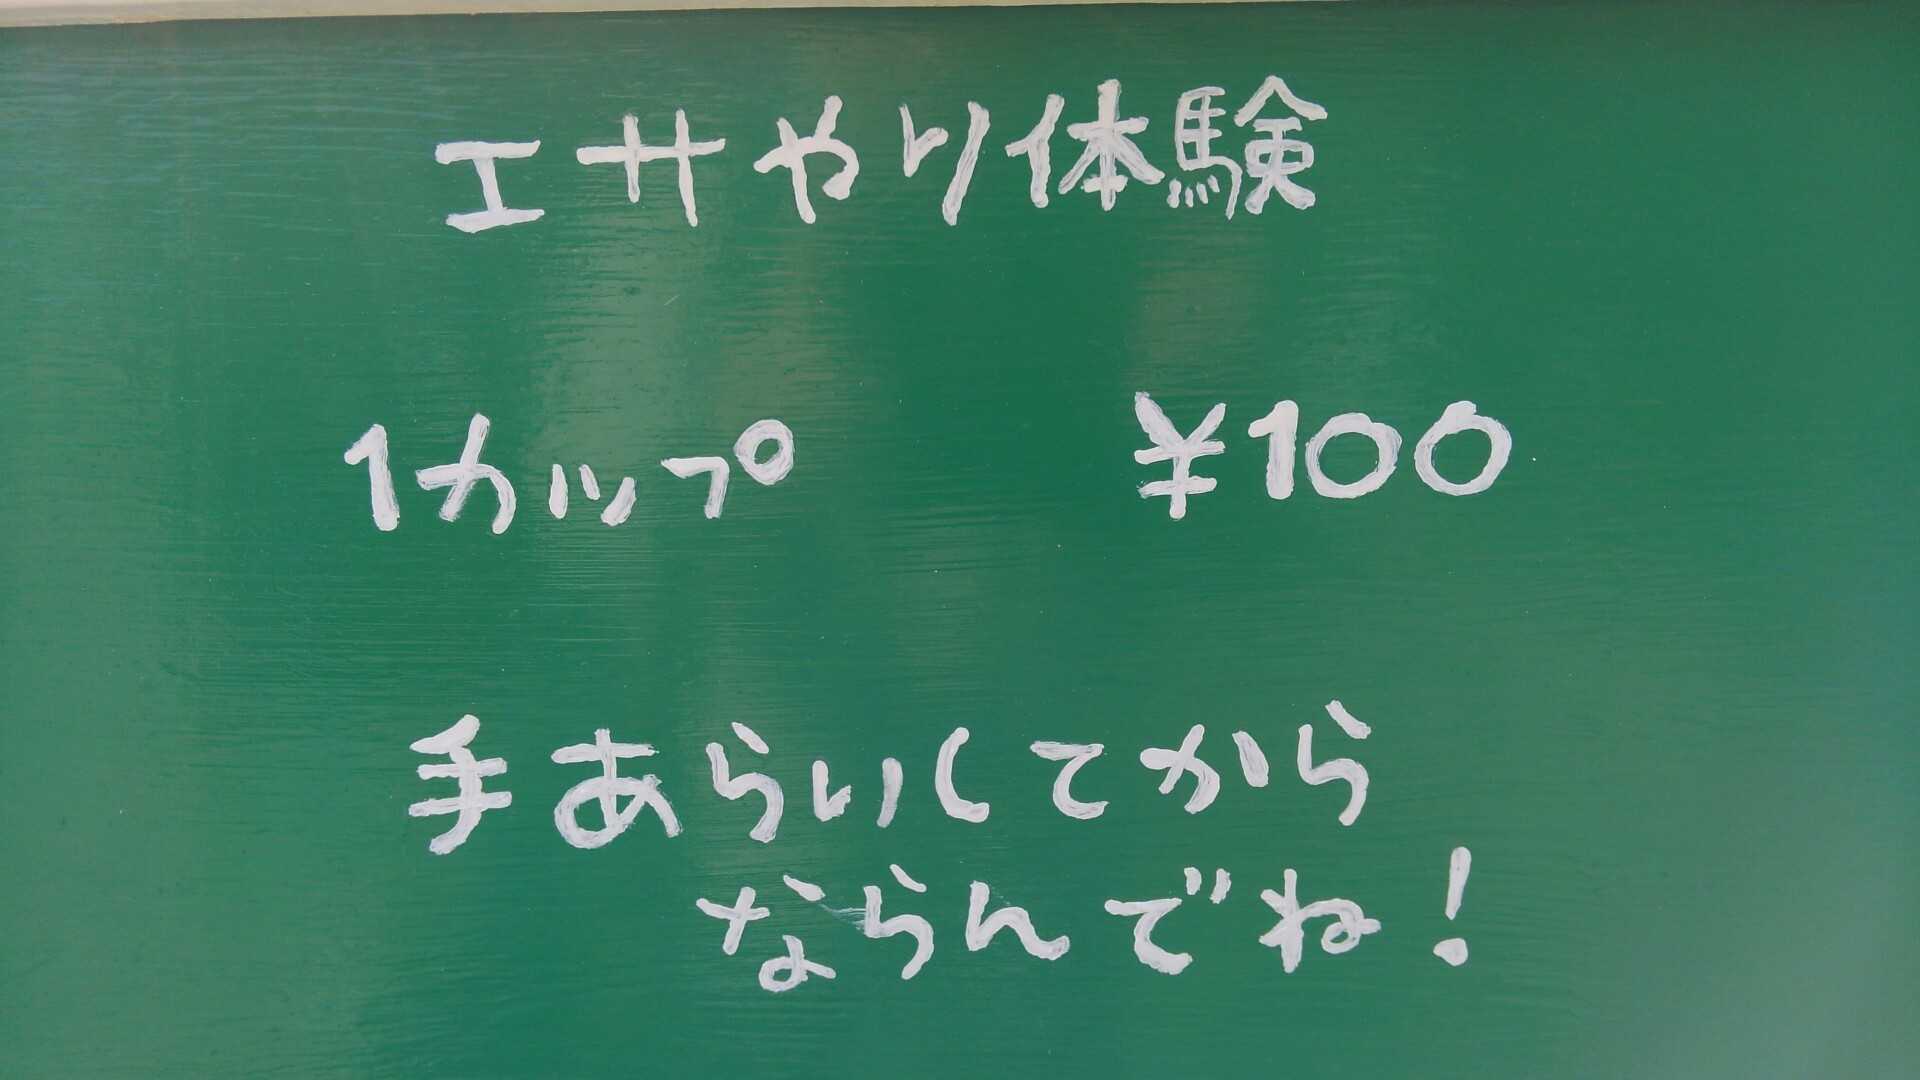 エサやり体験
1カップ ¥100
手あらいしてから
ならんでね!